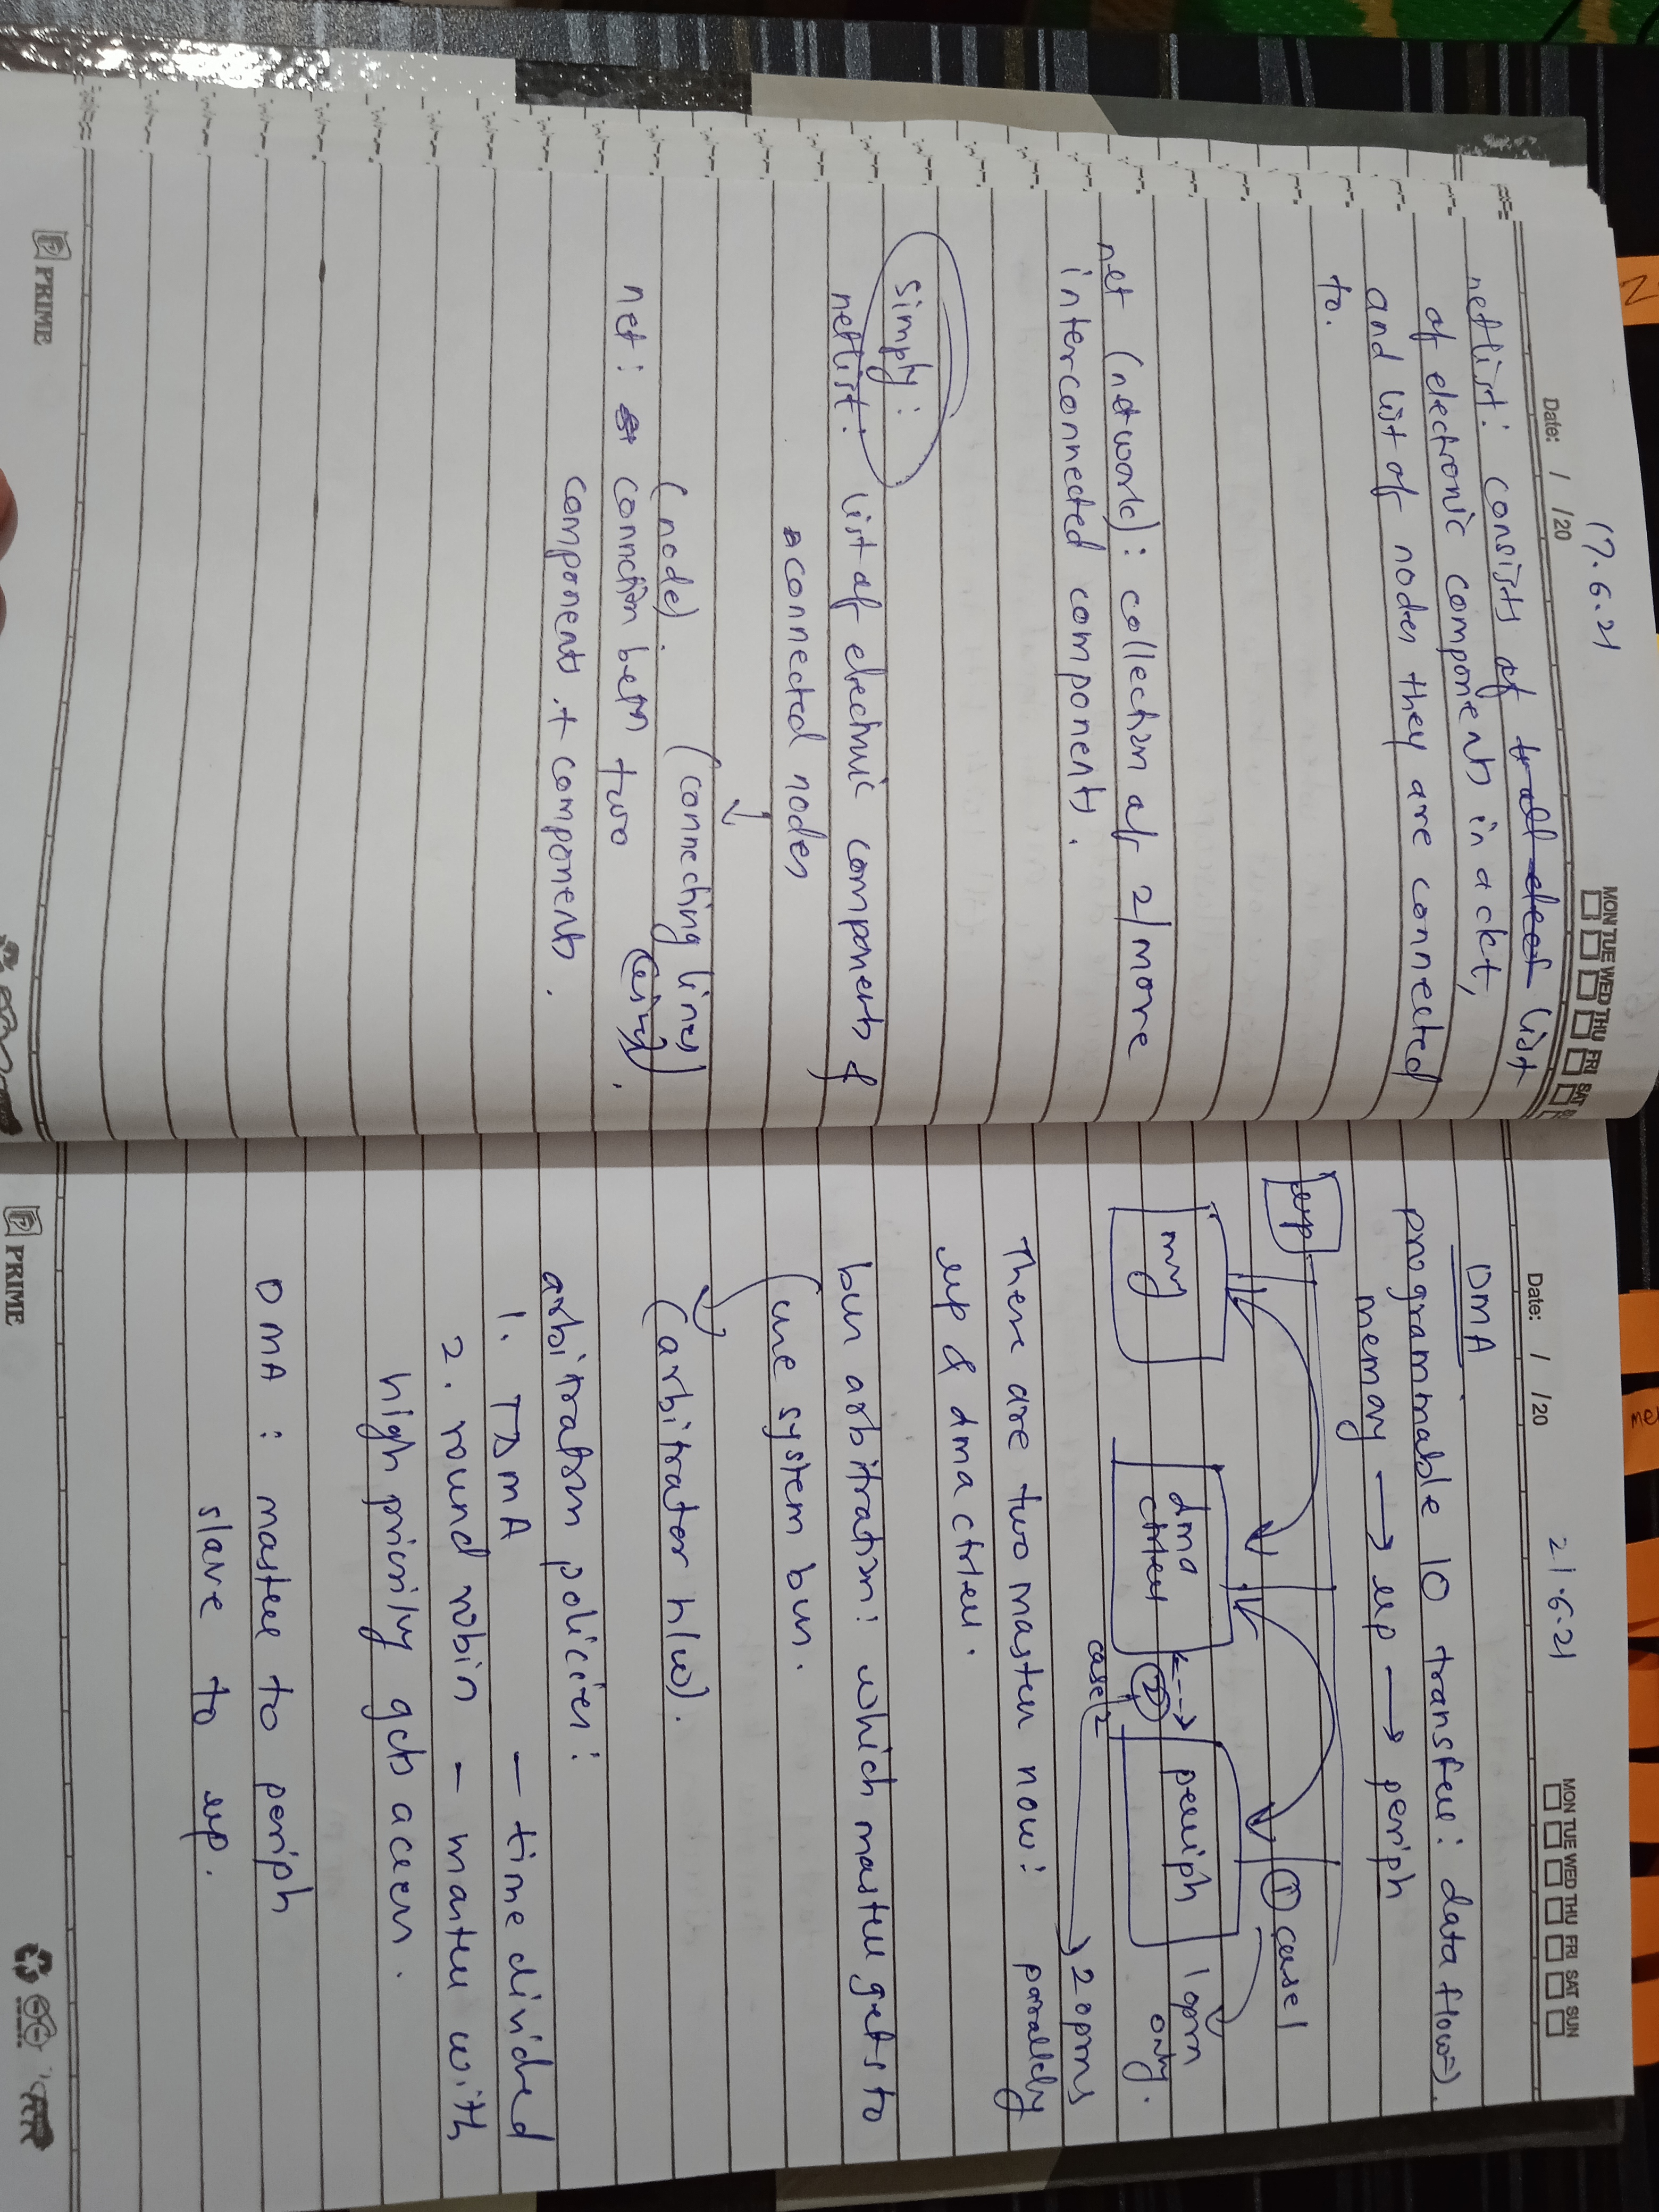 17.6.21
Date: / /20
MON TUE WED THU FRI SAT
netlist: consists of list
of electronic components in a ckt,
and list of nodes they are connected
to.
net (network): collection of 2/more
interconnected components.
simply:
netlist: list of electronic components &
connected nodes
(node). (connecting lines)
net: connection betn two (using)
components + components.
PRIME
21.6.21
Date: / /20
MON TUE WED THU FRI SAT SUN
DMA
programmable IO transfer: data flow).
memory → up → periph
up
① case 1
my
dma
ctrler
②
periph
1 oprn
only.
case 2
2 oprns
parallely
There are two master now:
up & dma ctrler.
bus arbitration: which master gets to
use system bus.
(arbitrator h/w).
arbitration policies:
1. TDMA - time divided
2. round robin - master with
high priority gets access.
DMA : master to periph
slave to up.
PRIME